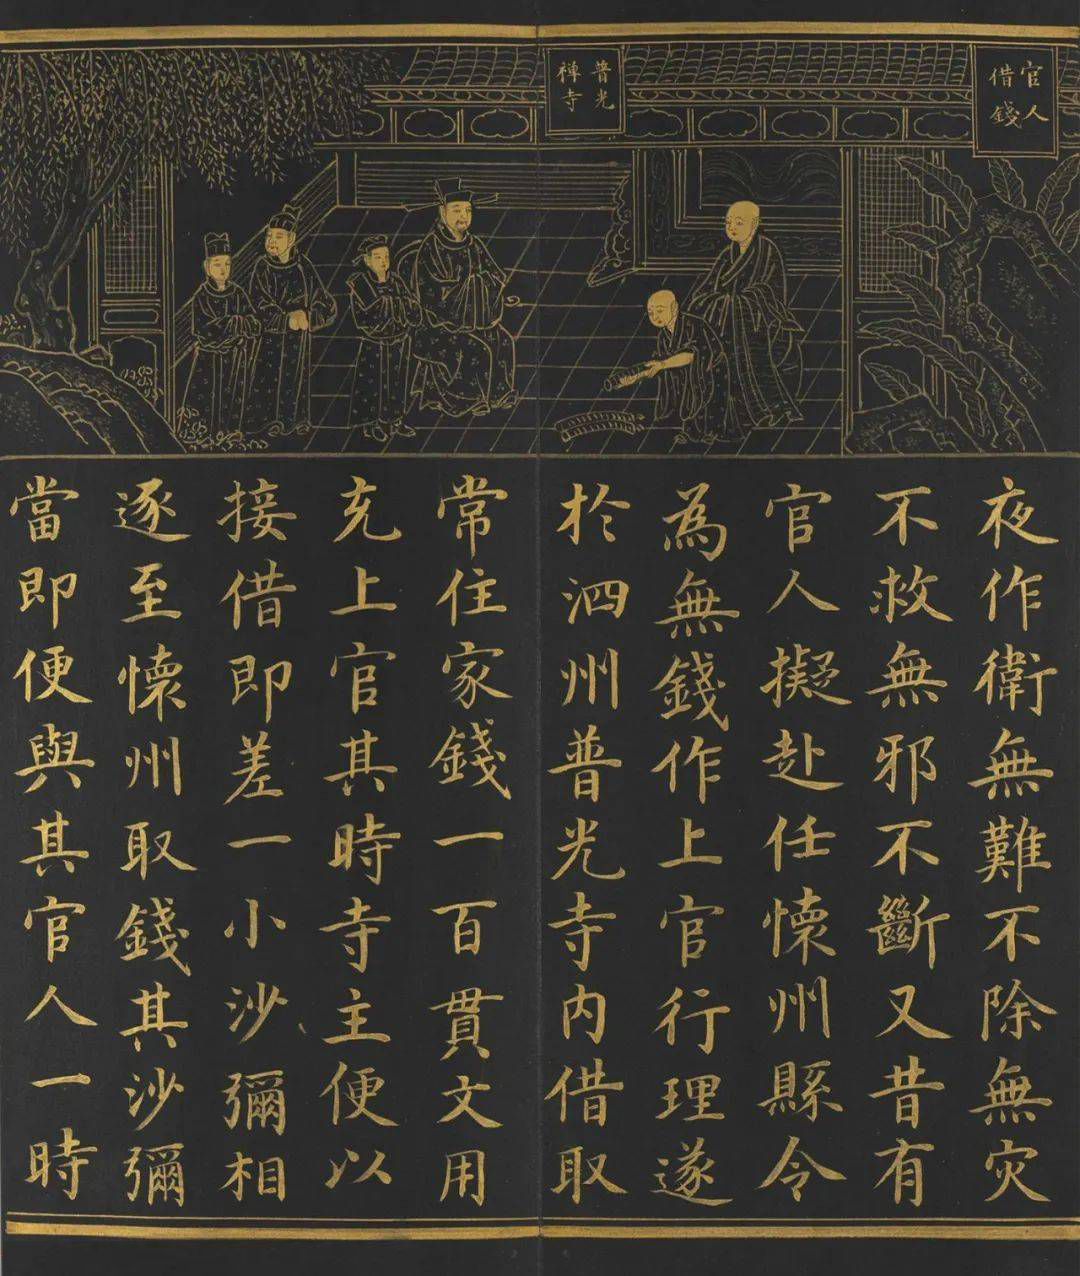 官人
借錢
普光
禪寺
夜作衛無難不除無灾
不救無邪不斷又昔有
官人擬赴任懐州縣令
為無錢作上官行理遂
於泗州普光寺内借取
常住家錢一百貫文用
充上官其時寺主便以
接借即差一小沙彌相
逐至懐州取錢其沙彌
當即便與其官人一時